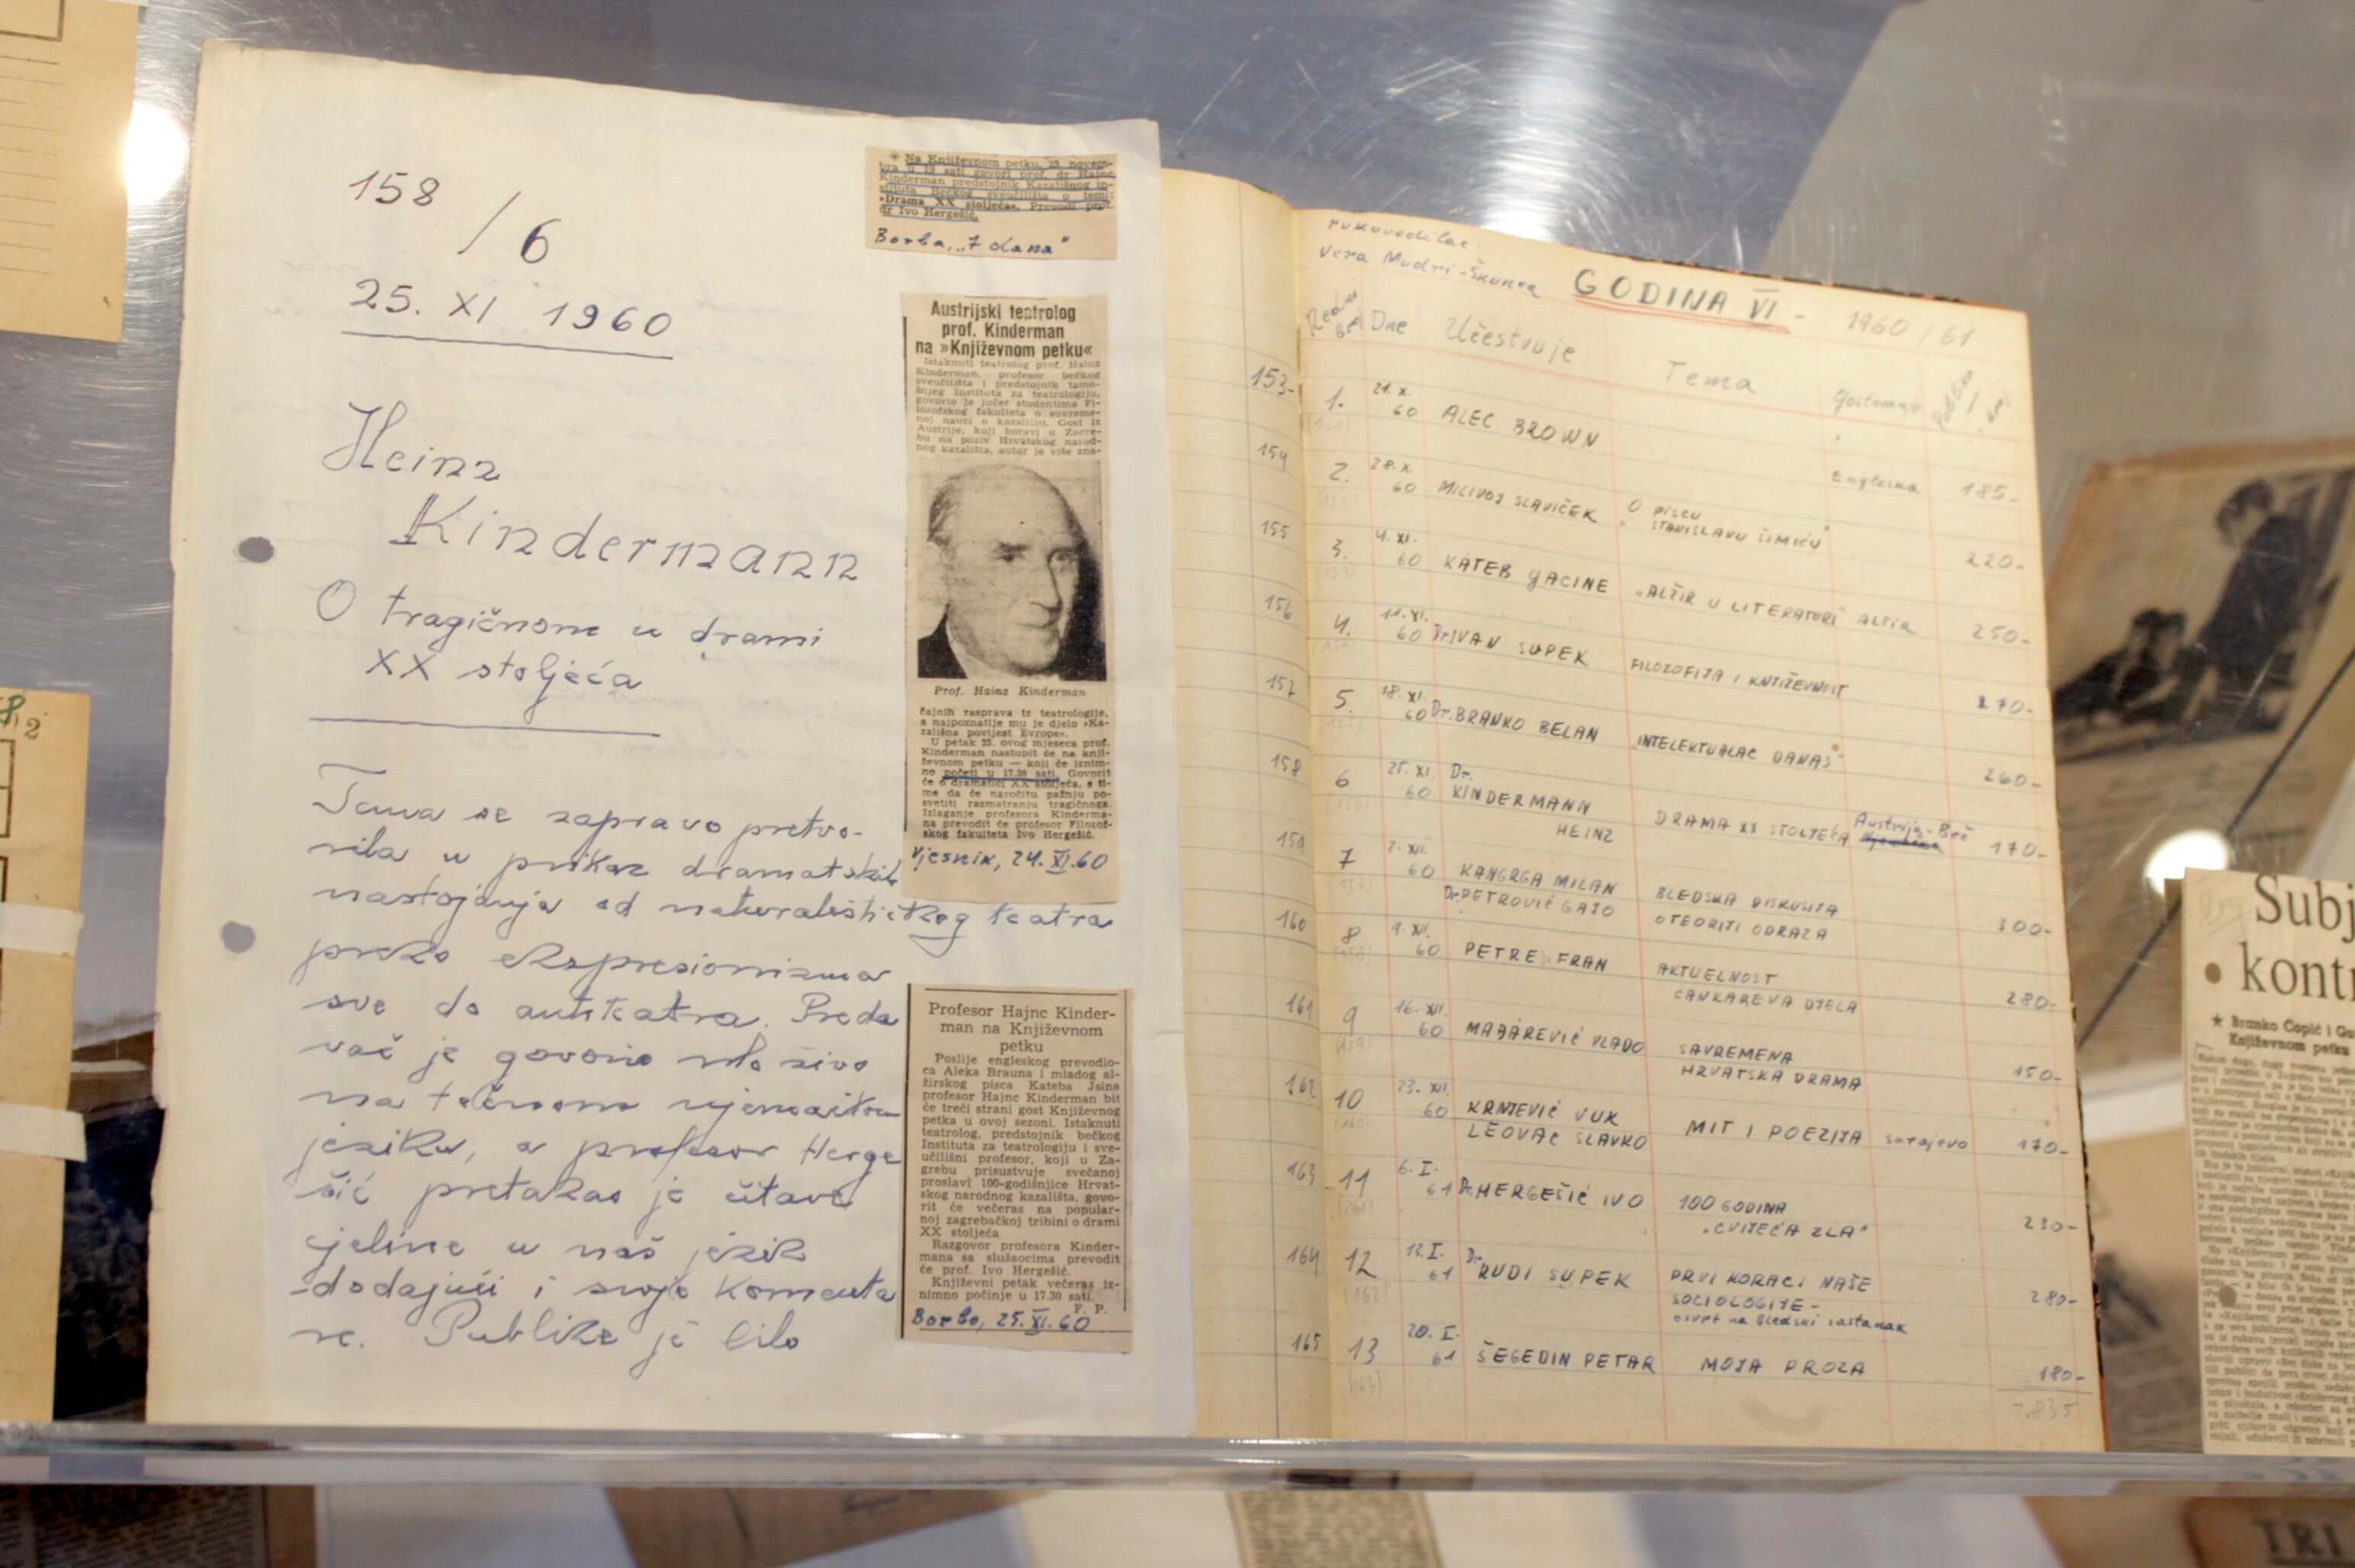 158
/ 6
25. XI 1960
Heinz
Kindermann
O tragičnom u drami
XX stoljeća
Tema se zapravo pretvo-
rila u prikaz dramatskih
nastojanja od naturalističkog teatra
preko ekspresionizma
sve do antiteatra. Preda
vač je govorio vrlo živo
na tečnom njemačkom
jeziku, a profesor Herge
šić pretakao je čitave
cjeline u naš jezik
dodajući i svoje komenta
re. Publike je bilo
* Na Književnom petku, 25. novem-
bra u 19 sati govori prof. dr Hajnc
Kinderman predstojnik Kazališnog in-
stituta Bečkog sveučilišta o temi:
»Drama XX stoljeća«. Prevodi prof.
dr Ivo Hergešić.
Borba, „7 dana"
Austrijski teatrolog
prof. Kinderman
na »Književnom petku«
Istaknuti teatrolog prof. Hainz
Kinderman, profesor bečkog
sveučilišta i predstojnik tamo-
šnjeg Instituta za teatrologiju,
govorio je jučer studentima Fi-
lozofskog fakulteta o suvreme-
noj nauci o kazalištu. Gost iz
Austrije, koji boravi u Zagre-
bu na poziv Hrvatskog narod-
nog kazališta, autor je više zna-
Prof. Hainz Kinderman
čajnih rasprava iz teatrologije,
a najpoznatije mu je djelo »Ka-
zališna povijest Evrope«.
U petak 25. ovog mjeseca prof.
Kinderman nastupit će na knji-
ževnom petku — koji će iznim-
no početi u 17.30 sati. Govorit
će o dramatici XX stoljeća, s ti-
me da će naročitu pažnju po-
svetiti razmatranju tragičnoga.
Izlaganje profesora Kinderma-
na prevodit će profesor Filozof-
skog fakulteta Ivo Hergešić.
Vjesnik, 24. XI. 60
Profesor Hajnc Kinder-
man na Književnom
petku
Poslije engleskog prevodio-
ca Aleka Brauna i mladog al-
žirskog pisca Kateba Jsina
profesor Hajnc Kinderman bit
će treći strani gost Književnog
petka u ovoj sezoni. Istaknuti
teatrolog, predstojnik bečkog
Instituta za teatrologiju i sve-
učilišni profesor, koji u Za-
grebu prisustvuje svečanoj
proslavi 100-godišnjice Hrvat-
skog narodnog kazališta, govo-
rit će večeras na popular-
noj zagrebačkoj tribini o drami
XX stoljeća.
Razgovor profesora Kinder-
mana sa slušaocima prevodit
će prof. Ivo Hergešić.
Književni petak večeras iz-
nimno počinje u 17.30 sati.
F. P.
Borba, 25. XI. 60
rukovodilac
Vera Mudri-Škunca
GODINA VI - 1960 / 61
Redni Br. Dne Učestvuje Tema Gostovanje
153- 1. 21. X. 60 ALEC BROWN Engleska 185-
154 2. 28. X. 60 MILIVOJ SLAVIČEK O piscu
"STANISLAVU ŠIMIĆU" 220-
155 3. 4. XI. 60 KATEB YACINE „ALŽIR U LITERATURI" ALŽIR 250-
156 4. 11. XI. 60 Dr IVAN SUPEK FILOZOFIJA I KNJIŽEVNOST 270-
157 5. 18. XI. 60 Dr. BRANKO BELAN INTELEKTUALAC DANAS 260-
158 6 25. XI. 60 Dr. KINDERMANN
HEINZ DRAMA XX STOLJEĆA Austrija-Beč 170-
159 7 2. XII. 60 KANGRGA MILAN BLEDSKA DISKUSIJA
Dr. PETROVIĆ GAJO O TEORIJI ODRAZA 300-
160 8 9. XII. 60 PETRE FRAN AKTUELNOST
CANKAREVA DJELA 280-
161 9 16. XII. 60 MAĐAREVIĆ VLADO SAVREMENA
HRVATSKA DRAMA 150-
162 10 23. XII. 60 KRNJEVIĆ VUK
LEOVAC SLAVKO MIT I POEZIJA Sarajevo 170-
163 11 6. I. 61 Dr. HERGEŠIĆ IVO 100 GODINA
„CVIJEĆA ZLA" 230-
164 12 13. I. 61 Dr. RUDI SUPEK PRVI KORACI NAŠE
SOCIOLOGIJE -
osvrt na Bledski sastanak 280-
165 13 20. I. 61 ŠEGEDIN PETAR MOJA PROZA 180-
2.835
Subj
kont
* Branko Ćopić i
Književnom petku
TRI